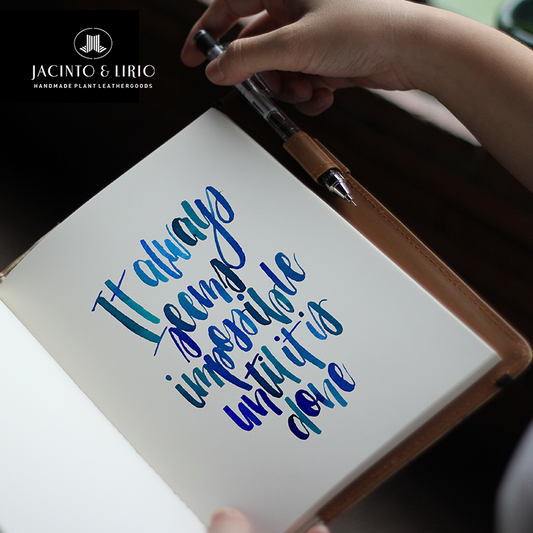 JACINTO & LIRIO
HANDMADE PLANT LEATHERGOODS
It always
seems
impossible
until it is
done